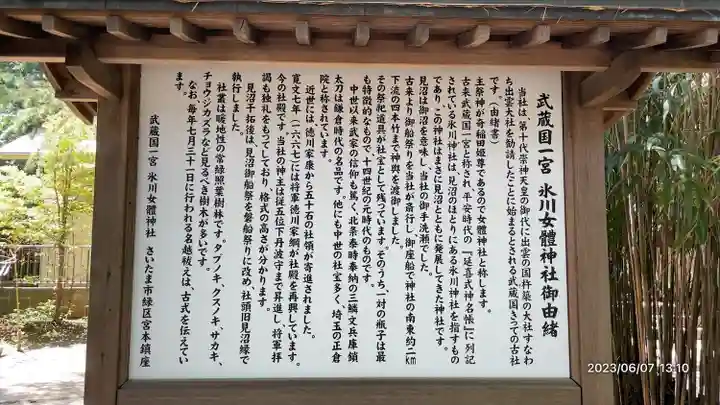 武蔵国一宮 氷川女體神社御由緒
当社は、第十代崇神天皇の御代に出雲の国杵築の大社すなわ
ち出雲大社を勧請したことに始まるとされる武蔵国きっての古社
です。（由緒書）
主祭神が奇稲田姫尊であるので女體神社と称します。
古来武蔵国一宮と称され、平安時代の『延喜式神名帳』に列記
されている氷川神社は、見沼のほとりにある氷川神社を指すもの
であり、この神社はまさに見沼とともに発展してきた神社です。
見沼は御沼を意味し、当社の御手洗瀬でした。
古来より御船祭りを当社が斎行し、御座船で神社の南東約二km
下流の四本竹まで神輿を渡御しました。
その祭祀道具が社宝として残っています。そのうち一対の瓶子は最
も特徴的なもので、十四世紀の元時代のものです。
中世以来武家の信仰も篤く、北条泰時奉納の三鱗文兵庫鎖
太刀は鎌倉時代の名品です。他にも中世の社宝多く、埼玉の正倉
院と称されています。
近世には、徳川家康から五十石の社領が寄進されました。
寛文七年（一六六七）には将軍徳川家綱が社殿を再興しています。
今の社殿です。当社の神主は従五位下丹波守まで昇進し、将軍拝
謁も独礼をもってしており、格式の高さが分かります。
見沼干拓後は、見沼御船祭を磐船祭りに改め、社頭旧見沼縁で
執行しました。
社叢は暖地性の常緑照葉樹林です。タブノキ、クスノキ、サカキ、
チョウジカズラなど見るべき樹木が多いです。
なお、毎年七月三十一日に行われる名越祓えは、古式を伝えてい
ます。
武蔵国一宮 氷川女體神社 さいたま市緑区宮本鎮座
2023/06/07 13:10